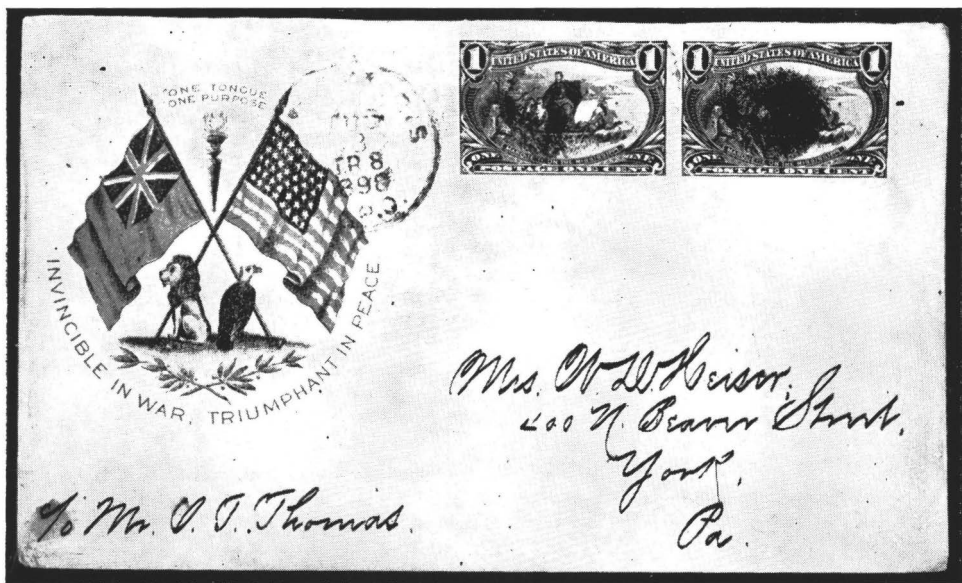 "ONE TONGUE
ONE PURPOSE"
INVINCIBLE IN WAR, TRIUMPHANT IN PEACE
TR 8
1898
P.O.
1 UNITED STATES OF AMERICA 1
ONE ONE
POSTAGE ONE CENT
1 UNITED STATES OF AMERICA 1
ONE ONE
POSTAGE ONE CENT
Mrs. W. D. Heiser,
200 N. Beaver Street,
York,
Pa.
c/o Mr. O. T. Thomas.